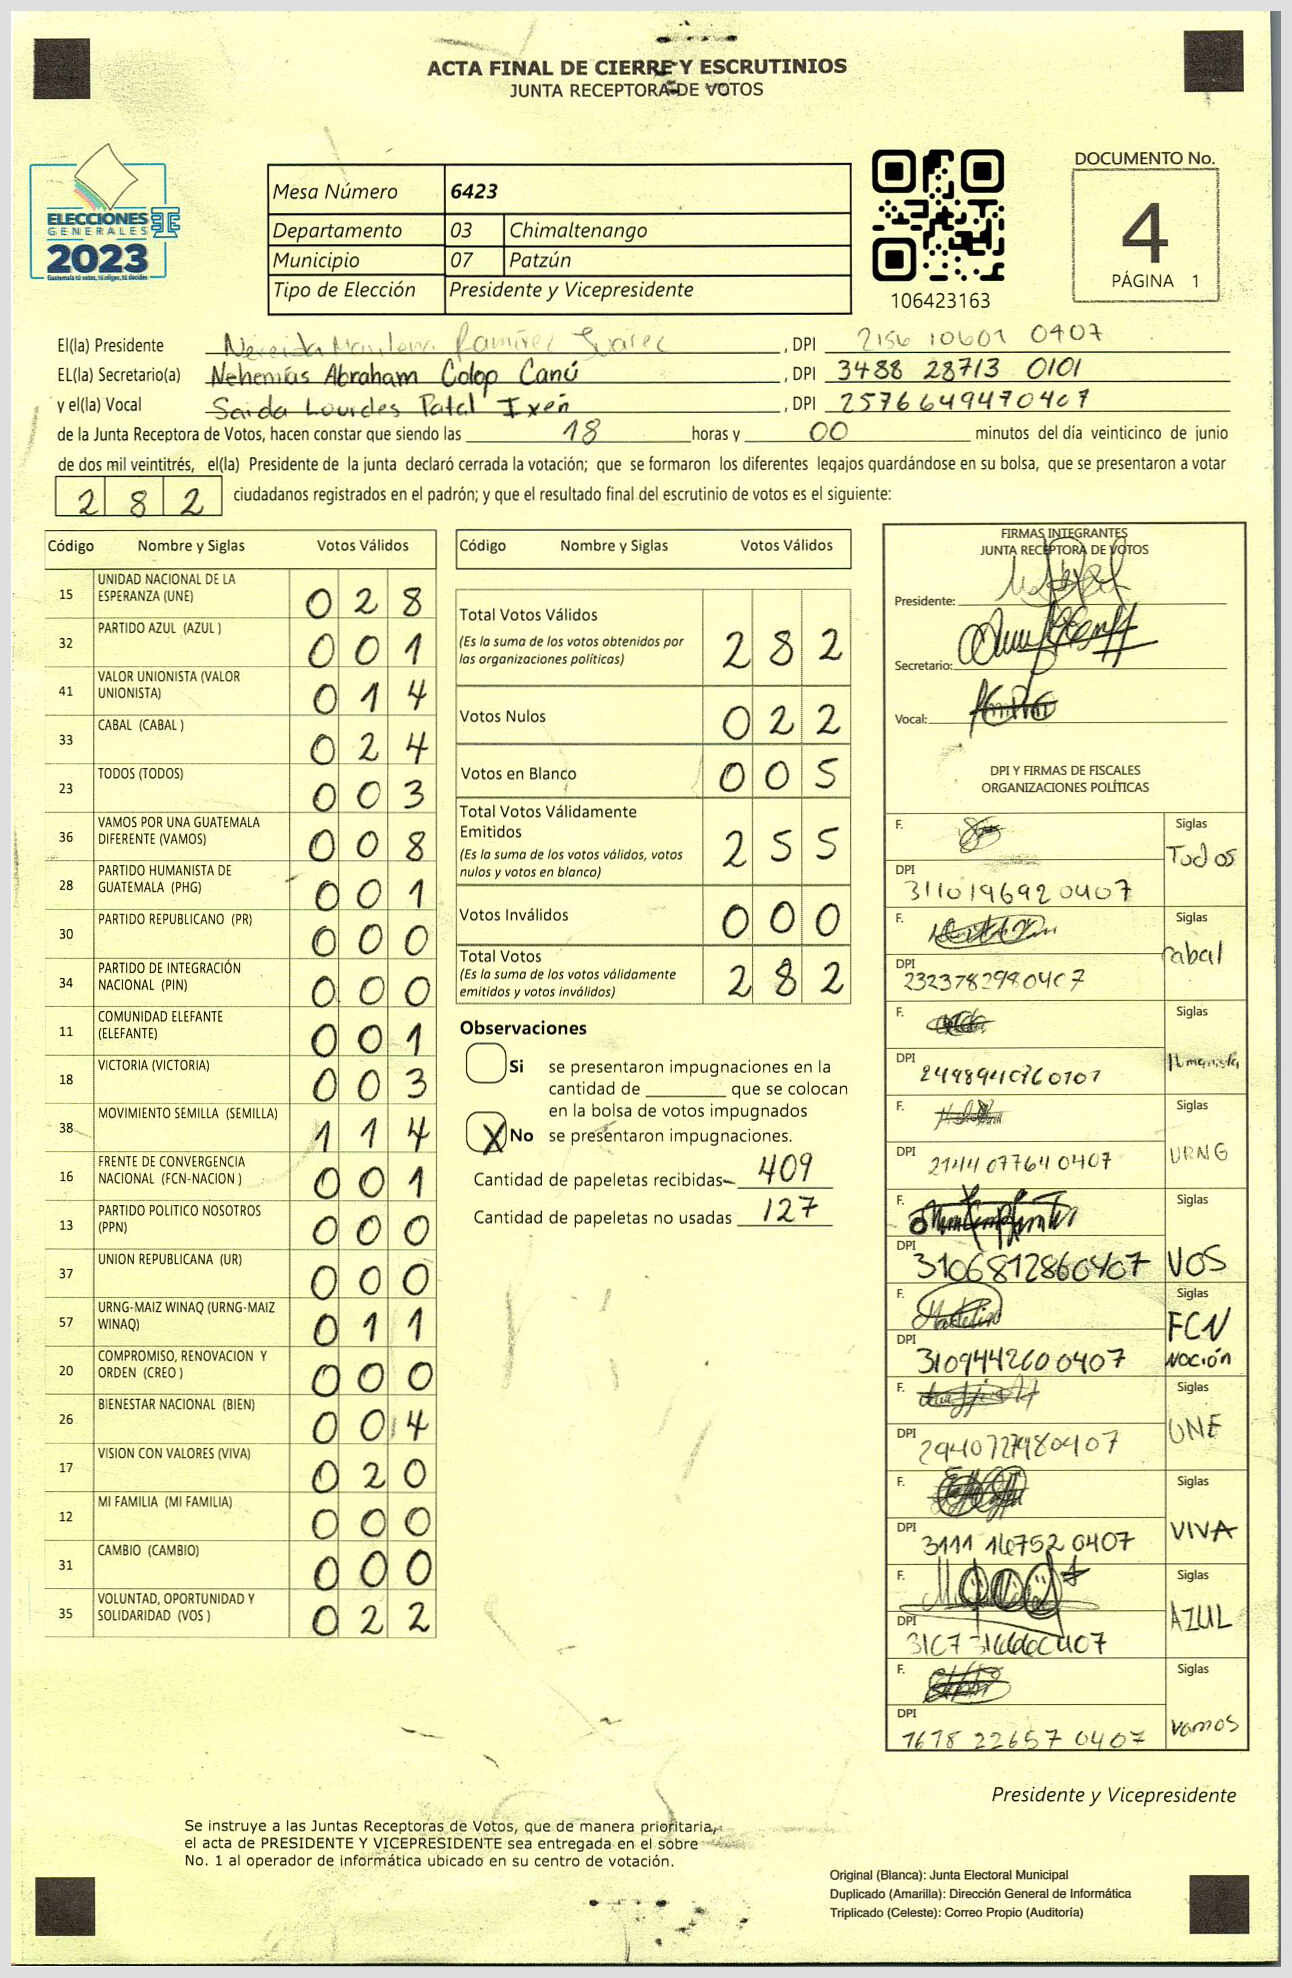 ACTA FINAL DE CIERRE Y ESCRUTINIOS
JUNTA RECEPTORA DE VOTOS
ELECCIONES
GENERALES
2023
Guatemala tú votas, tú eliges, tú decides
Mesa Número 6423
Departamento 03 Chimaltenango
Municipio 07 Patzún
Tipo de Elección Presidente y Vicepresidente
106423163
DOCUMENTO No.
4
PÁGINA 1
El(la) Presidente Ramírez Juárez , DPI 2156 10601 0407
EL(la) Secretario(a) Nehemías Abraham Colop Canú , DPI 3488 28713 0101
y el(la) Vocal Saida Lourdes Patal Ixén , DPI 2576649470407
de la Junta Receptora de Votos, hacen constar que siendo las 18 horas y 00 minutos del día veinticinco de junio
de dos mil veintitrés, el(la) Presidente de la junta declaró cerrada la votación; que se formaron los diferentes legajos guardándose en su bolsa, que se presentaron a votar
282 ciudadanos registrados en el padrón; y que el resultado final del escrutinio de votos es el siguiente:
Código Nombre y Siglas Votos Válidos
15 UNIDAD NACIONAL DE LA ESPERANZA (UNE) 028
32 PARTIDO AZUL (AZUL ) 001
41 VALOR UNIONISTA (VALOR UNIONISTA) 014
33 CABAL (CABAL ) 024
23 TODOS (TODOS) 003
36 VAMOS POR UNA GUATEMALA DIFERENTE (VAMOS) 008
28 PARTIDO HUMANISTA DE GUATEMALA (PHG) 001
30 PARTIDO REPUBLICANO (PR) 000
34 PARTIDO DE INTEGRACIÓN NACIONAL (PIN) 000
11 COMUNIDAD ELEFANTE (ELEFANTE) 001
18 VICTORIA (VICTORIA) 003
38 MOVIMIENTO SEMILLA (SEMILLA) 114
16 FRENTE DE CONVERGENCIA NACIONAL (FCN-NACION ) 001
13 PARTIDO POLITICO NOSOTROS (PPN) 000
37 UNION REPUBLICANA (UR) 000
57 URNG-MAIZ WINAQ (URNG-MAIZ WINAQ) 011
20 COMPROMISO, RENOVACION Y ORDEN (CREO ) 000
26 BIENESTAR NACIONAL (BIEN) 004
17 VISION CON VALORES (VIVA) 020
12 MI FAMILIA (MI FAMILIA) 000
31 CAMBIO (CAMBIO) 000
35 VOLUNTAD, OPORTUNIDAD Y SOLIDARIDAD (VOS ) 022
Código Nombre y Siglas Votos Válidos
Total Votos Válidos 282
(Es la suma de los votos obtenidos por
las organizaciones políticas)
Votos Nulos 022
Votos en Blanco 005
Total Votos Válidamente
Emitidos 255
(Es la suma de los votos válidos, votos
nulos y votos en blanco)
Votos Inválidos 000
Total Votos 282
(Es la suma de los votos válidamente
emitidos y votos inválidos)
Observaciones
Si se presentaron impugnaciones en la
cantidad de ________ que se colocan
en la bolsa de votos impugnados
X No se presentaron impugnaciones.
Cantidad de papeletas recibidas 409
Cantidad de papeletas no usadas 127
FIRMAS INTEGRANTES
JUNTA RECEPTORA DE VOTOS
Presidente:
Secretario:
Vocal:
DPI Y FIRMAS DE FISCALES
ORGANIZACIONES POLÍTICAS
F. Siglas Todos
DPI 3110196920407
F. Siglas cabal
DPI 2323782980407
F. Siglas Humanista
DPI
F. Siglas URNG
DPI 2144 07764 0407
F. Siglas VOS
DPI 3106812860407
F. Siglas FCN
Noción
DPI 3109442600407
F. Siglas UNE
DPI
F. Siglas VIVA
DPI 3111 16752 0407
F. Siglas AZUL
DPI
F. Siglas vamos
DPI 1678 22657 0407
Presidente y Vicepresidente
Se instruye a las Juntas Receptoras de Votos, que de manera prioritaria,
el acta de PRESIDENTE Y VICEPRESIDENTE sea entregada en el sobre
No. 1 al operador de informática ubicado en su centro de votación.
Original (Blanca): Junta Electoral Municipal
Duplicado (Amarilla): Dirección General de Informática
Triplicado (Celeste): Correo Propio (Auditoría)